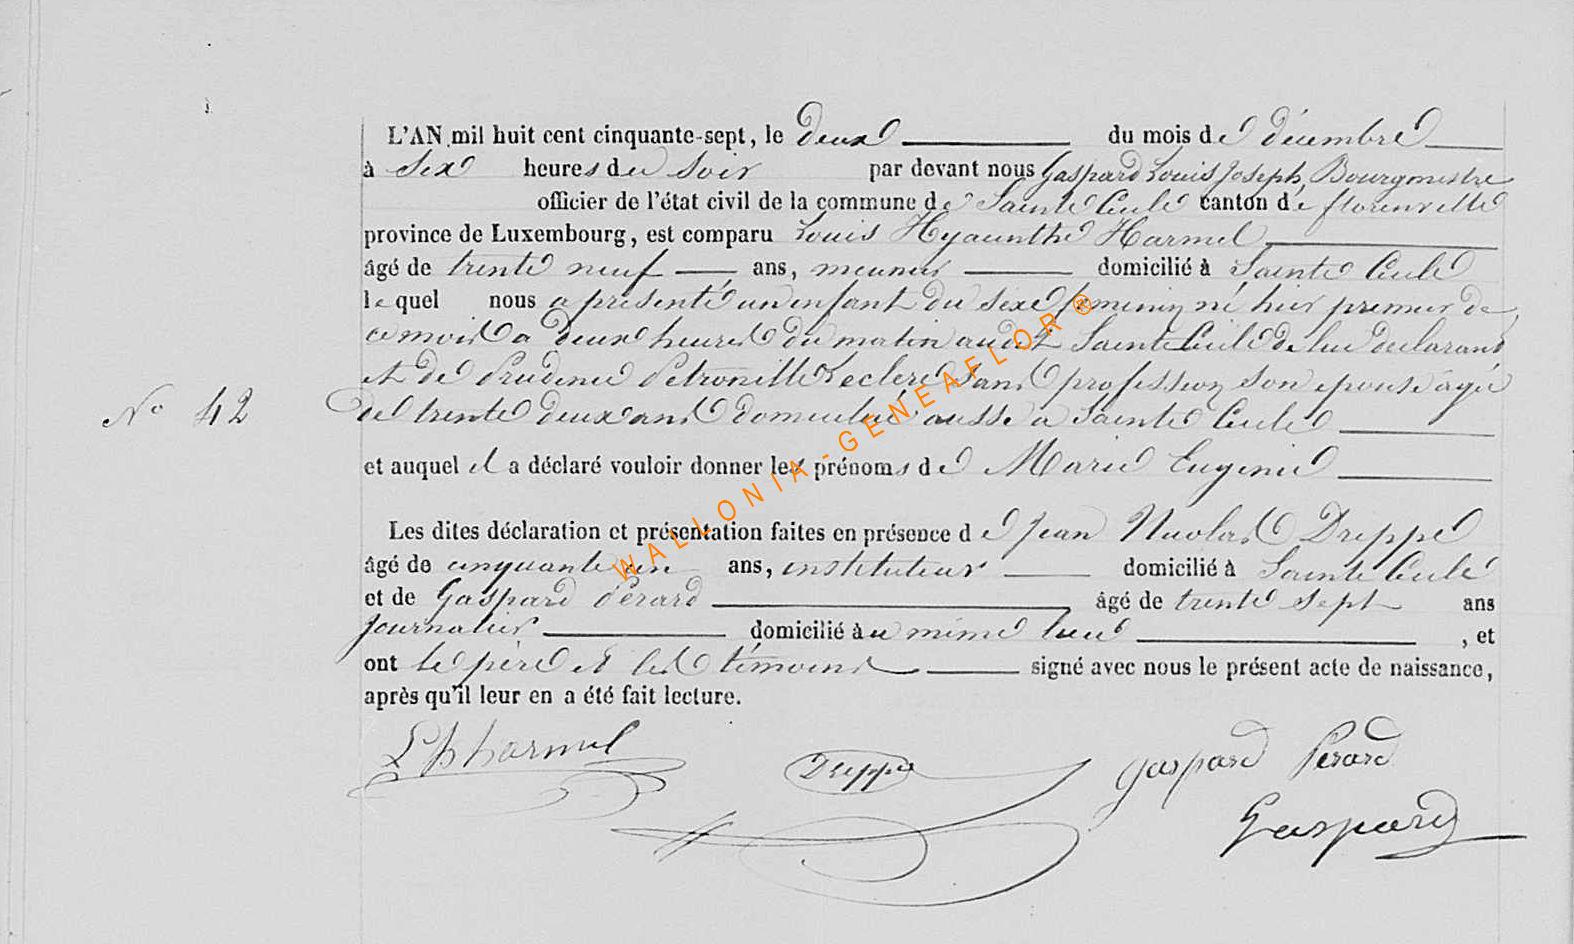 L'AN mil huit cent cinquante-sept, le deux du mois de décembre
à six heures du soir par devant nous Gaspard Louis Joseph, Bourgmestre
officier de l'état civil de la commune de Sainte Cecile canton de florenville
province de Luxembourg, est comparu Louis Hyacinthe Harmel
âgé de trente neuf ans, meunier domicilié à Sainte Cecile
lequel nous a présenté un enfant du sexe feminin né hier premier de
ce mois a deux heures du matin audit Sainte Cecile de lui declarant
et de Prudence Petronille Leclere sans profession son epouse agée
N° 42 de trente deux ans domiciliée aussi a Sainte Cecile
et auquel il a déclaré vouloir donner les prénoms de Marie Eugenie
Les dites déclaration et présentation faites en présence de Jean Nicolas Dreppe
âgé de cinquante un ans, instituteur domicilié à Sainte Cecile
et de Gaspard Pérard âgé de trente sept ans
journalier domicilié au même lieu, et
ont le père et les témoins signé avec nous le présent acte de naissance,
après qu'il leur en a été fait lecture.
LhHarmel Dreppe Gaspard Pérard
Gaspard
WALLONIA-GENEAFLOR ®